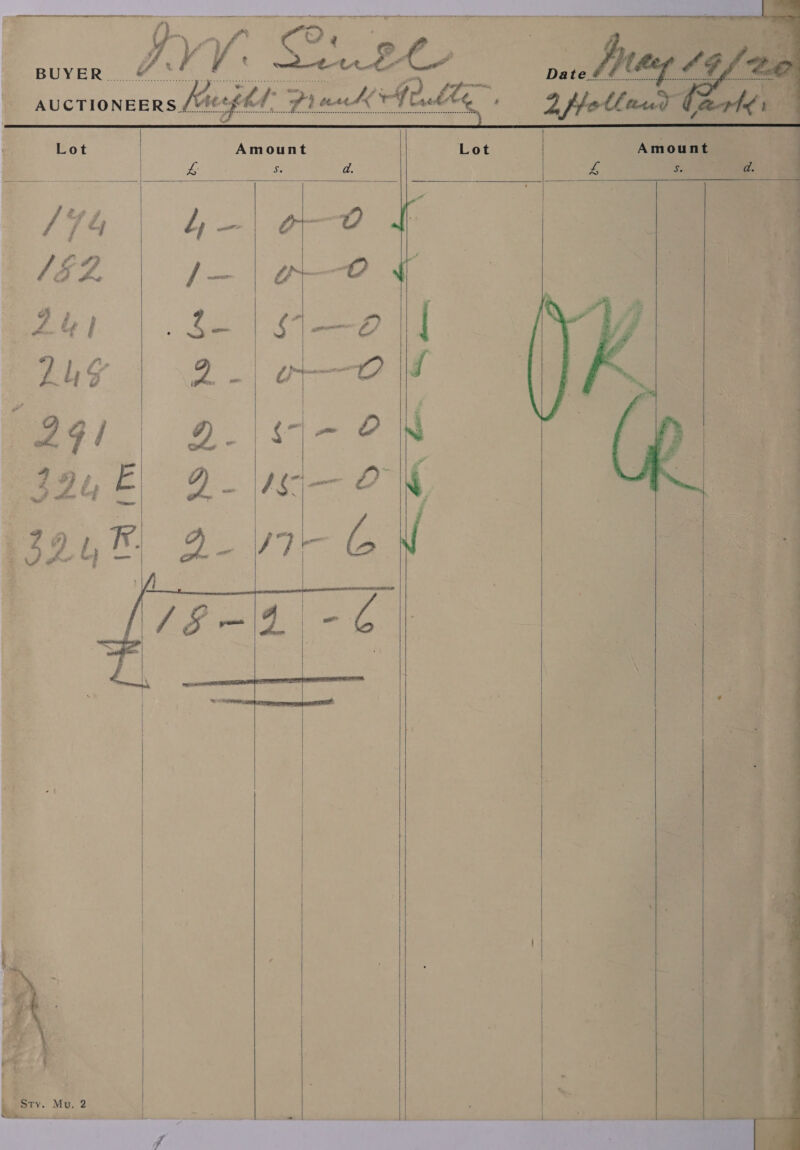 BUYER
Date May 19/20
AUCTIONEERS Knight Frank & Rutley. 2 Holland Park.
Lot Amount Lot Amount
£ s. d. £ s. d.
174 4 - 0 - 0 ✓
182 1 - 0 - 0 ✓
241 3 - 5 - 0 ✓
248 2 - 0 - 0 ✓
OK
291 2 - 5 - 0 ✓
324 E 2 - 15 - 0 ✓
324 R 2 - 17 - 6 ✓
£18 - 2 - 6
Sty. Mu. 2